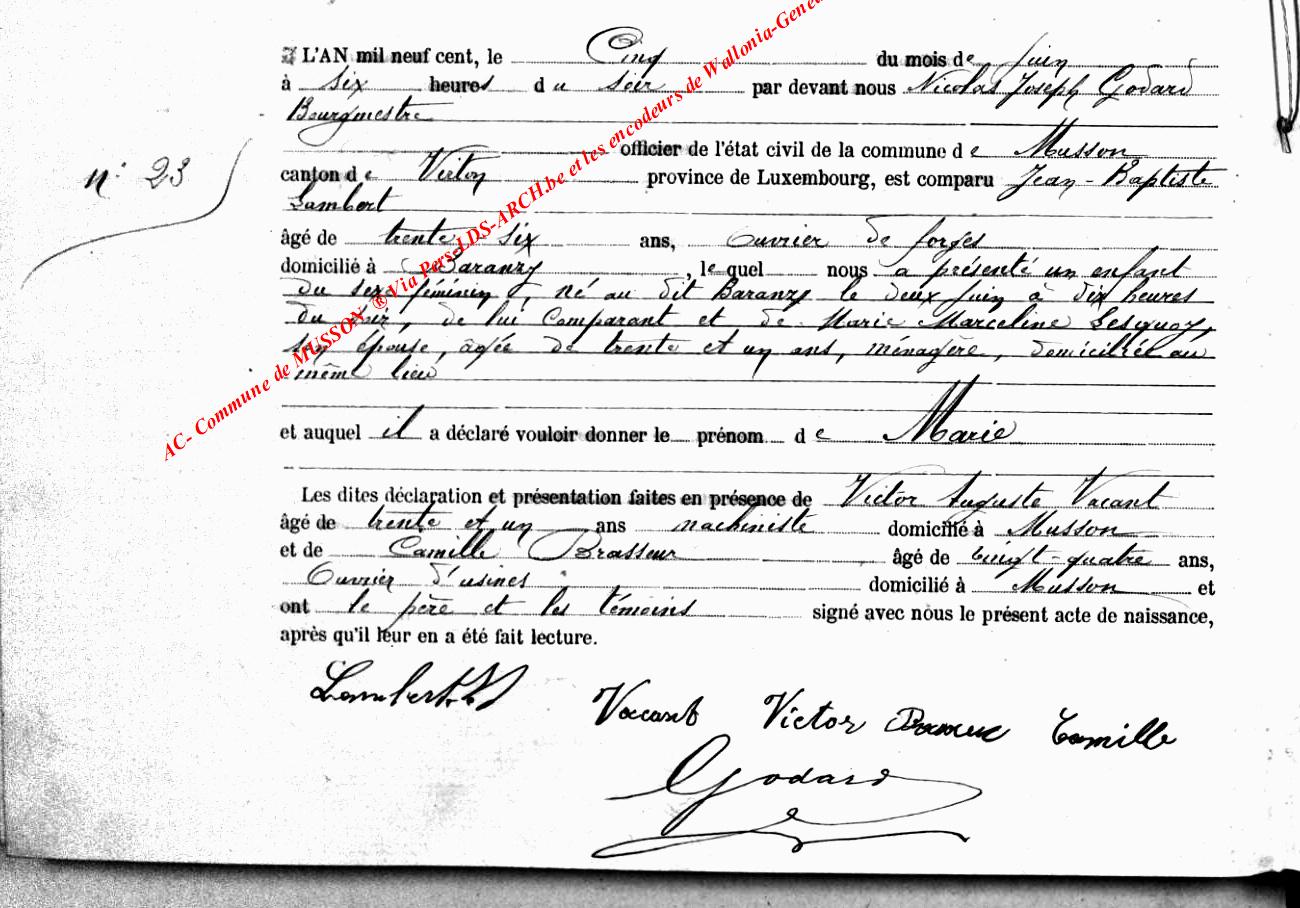 L'AN mil neuf cent, le Cinq du mois de juin
à six heures du soir par devant nous Nicolas Joseph Godard
Bourgmestre
officier de l'état civil de la commune de Musson
n° 23
canton de Virton province de Luxembourg, est comparu Jean-Baptiste
Lambert
âgé de trente six ans, ouvrier de forges
domicilié à Baranzy, lequel nous a présenté un enfant
du sexe féminin, né au dit Baranzy le deux juin à dix heures
du soir, de lui Comparant et de Marie Marceline Lesquoy,
son épouse, âgée de trente et un ans, ménagère, domiciliée au
même lieu
et auquel il a déclaré vouloir donner le prénom de Marie
Les dites déclaration et présentation faites en présence de Victor Auguste Vacant
âgé de trente et un ans machiniste domicilié à Musson
et de Camille Brasseur âgé de vingt-quatre ans,
Ouvrier d'usines domicilié à Musson et
ont le père et les témoins signé avec nous le présent acte de naissance,
après qu'il leur en a été fait lecture.
Lambert
Vacant Victor Brasseur Camille
Godard
AC- Commune de MUSSON ® Via Pers-LDS-ARCH.be et les encodeurs de Wallonia-Genea